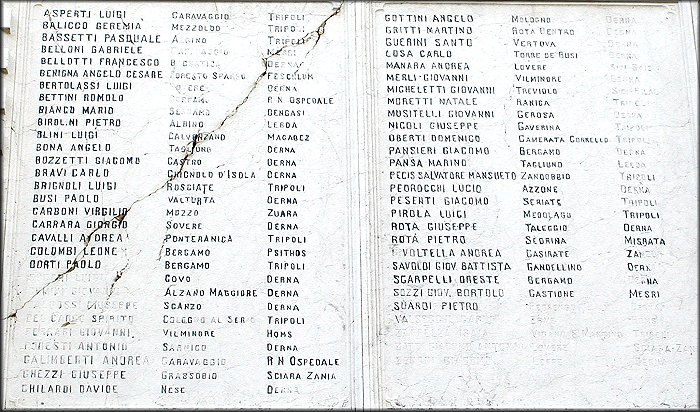 ASPERTI LUIGI CARAVAGGIO TRIPOLI
BALICCO GEREMIA MEZZOLDO TRIPOLI
BASSETTI PASQUALE ALBINO TRIPOLI
BELLONI GABRIELE
BELLOTTI FRANCESCO DERNA
BENIGNA ANGELO CESARE FORESTO SPARSO FESCHLUM
BERTOLASSI LUIGI DERNA
BETTINI ROMOLO R N OSPEDALE
BIANCO MARIO BENGASI
BIROLINI PIETRO ALBINO LEBDA
BLINI LUIGI CALVENZANO MACABEZ
BONA ANGELO TAGLIUNO DERNA
BOZZETTI GIACOMO CASTRO DERNA
BRAVI CARLO CHIGNOLO D'ISOLA DERNA
BRIGNOLI LUIGI ROSCIATE TRIPOLI
BUSI PAOLO VALTURTA DERNA
CARBONI VIRGILIO MOZZO ZUARA
CARRARA GIORGIO SOVERE DERNA
CAVALLI ANDREA PONTERANICA TRIPOLI
COLOMBI LEONE BERGAMO PSITHOS
DORTI PAOLO BERGAMO TRIPOLI
COVO DERNA
ALZANO MAGGIORE DERNA
GIUSEPPE SCANZO DERNA
SPIRITO COLOGNO AL SERIO TRIPOLI
FERRARI GIOVANNI VILMINORE HOMS
FORESTI ANTONIO SARNICO DERNA
GALIMBERTI ANDREA CARAVAGGIO R N OSPEDALE
GHEZZI GIUSEPPE GRASSOBIO SCIARA ZANIA
GHILARDI DAVIDE NESE DERNA
GOTTINI ANGELO MOLOGNO DERNA
GRITTI MARTINO ROTA DENTRO DERNA
GUERINI SANTO VERTOVA DERNA
LOSA CARLO TORRE DE' BUSI DERNA
MANARA ANDREA LOVERE
MERLI GIOVANNI VILMINORE DERNA
MICHELETTI GIOVANNI TREVIOLO
MORETTI NATALE RANICA TRIPOLI
MUSITELLI GIOVANNI GEROSA DERNA
NICOLI GIUSEPPE GAVERINA TRIPOLI
OBERTI DOMENICO CAMERATA CORNELLO TRIPOLI
PANSIERI GIACOMO BERGAMO DERNA
PANSA MARINO TAGLIUNO LEBDA
PECIS SALVATORE MANSUETO ZANDOBBIO TRIPOLI
PEDROCCHI LUCIO AZZONE DERNA
PESENTI GIACOMO SERIATE TRIPOLI
PIROLA LUIGI MEDOLAGO TRIPOLI
ROTA GIUSEPPE TALEGGIO DERNA
ROTA PIETRO SEDRINA MISRATA
VOLTELLA ANDREA CASIRATE
SAVOLDI GIOV. BATTISTA GANDELLINO DERNA
SCARPELLI ORESTE BERGAMO DERNA
SOZZI GIOV. BORTOLO CASTIONE MESRI
SUARDI PIETRO